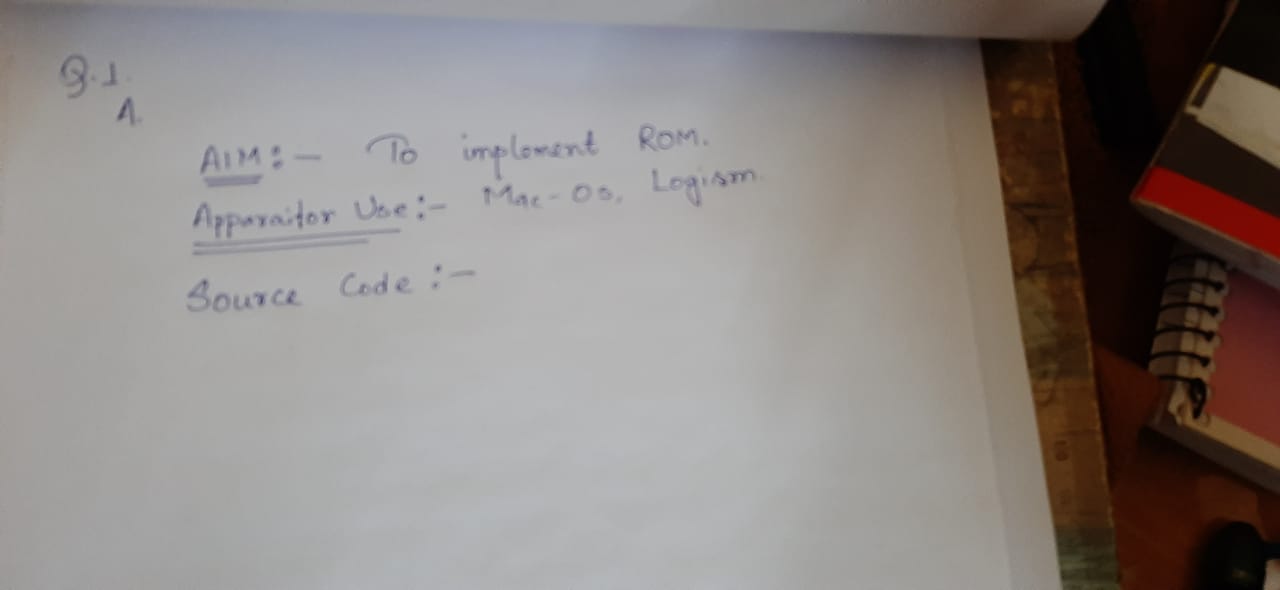 Q.1.
A.
AIM :- To implement ROM.
Apparaitor Use :- Mac-Os, Logism.
Source Code :-